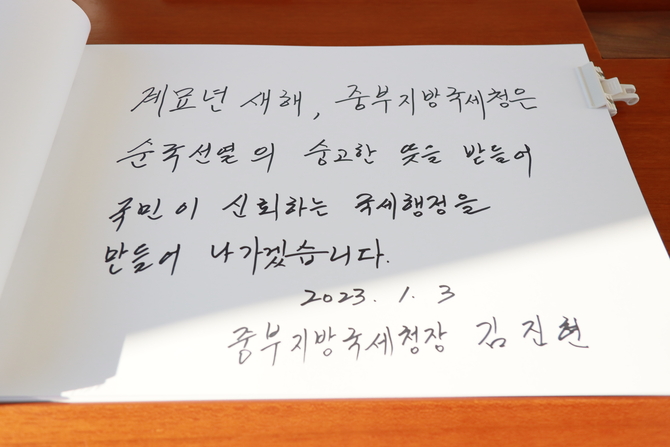 계묘년 새해, 중부지방국세청은
순국선열의 숭고한 뜻을 받들어
국민이 신뢰하는 국세행정을
만들어 나가겠습니다.
2023. 1. 3
중부지방국세청장 김진현